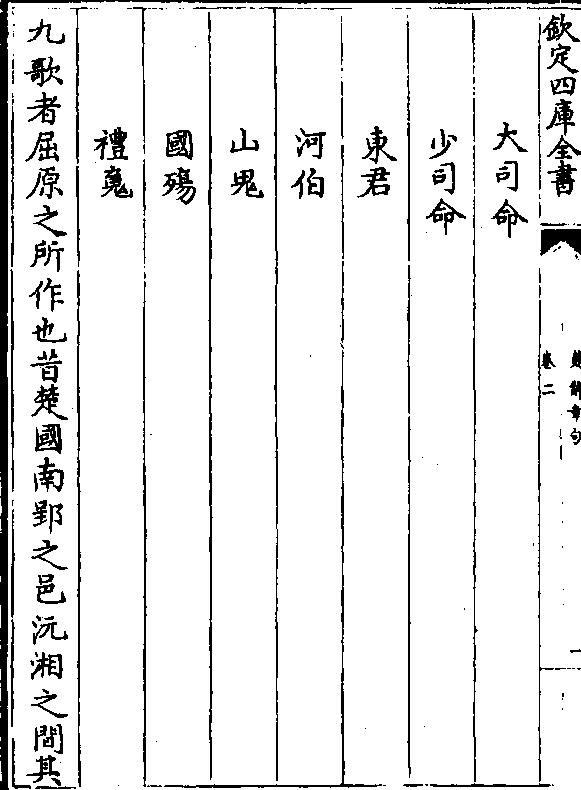 欽定四庫全書
楚辭章句
卷二
大司命
少司命
東君
河伯
山鬼
國殤
禮䰟
九歌者屈原之所作也昔楚國南郢之邑沅湘之間其